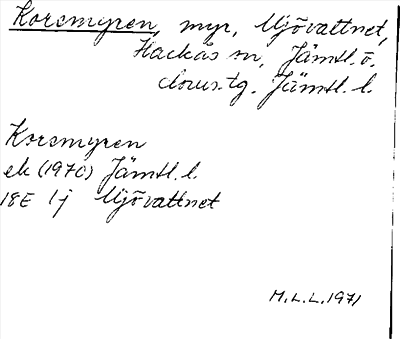 Korsmyren, myr, Mjövattnet,
Hackås sn, Jämtl. ö.
doms.tg. Jämtl. l.
Korsmyren
ek (1970) Jämtl. l.
18E 1j Mjövattnet
M.L.L. 1971